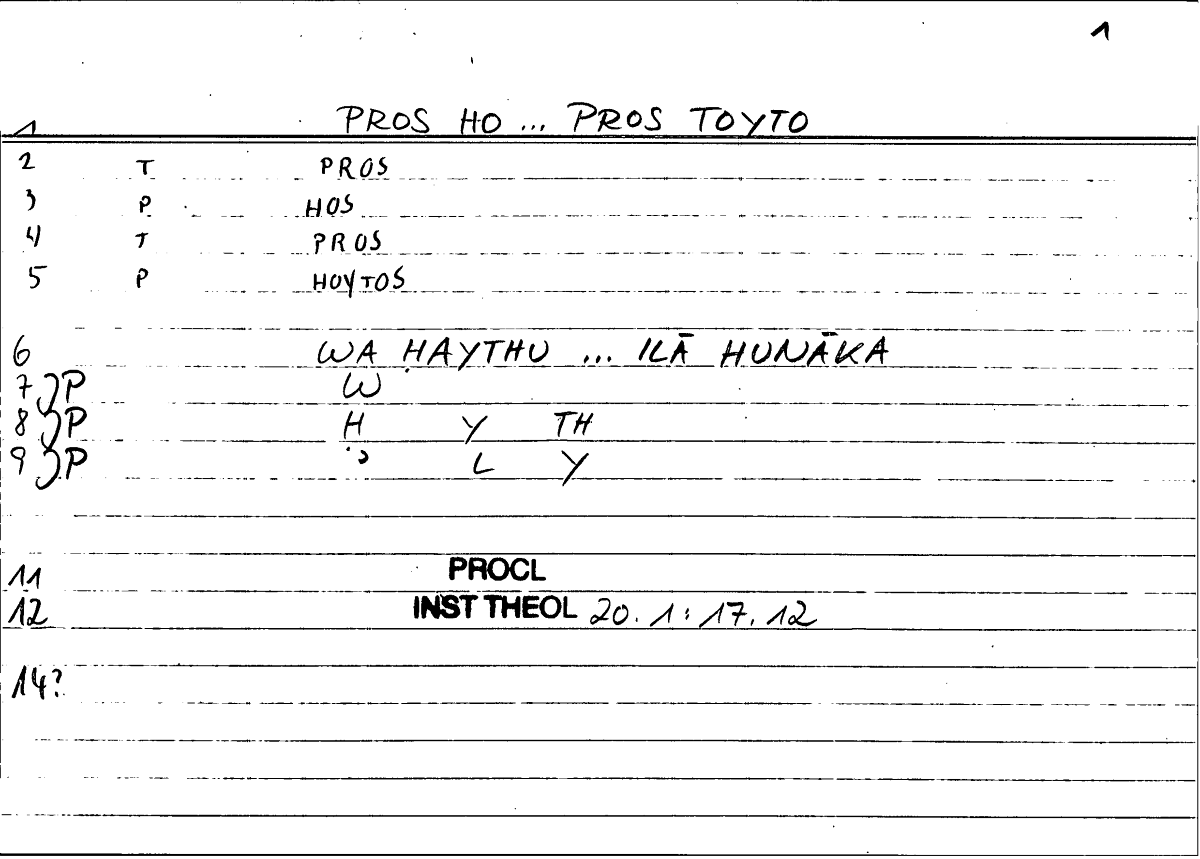 1
1 PROS HO ... PROS TOYTO
2 T PROS
3 P HOS
4 T PROS
5 P HOYTOS
6 WA ḤAYTHU ... ILĀ HUNĀKA
7 JP W
8 JP Ḥ Y TH
9 JP ʾ L Y
11 PROCL
12 INST THEOL 20. 1: 17. 12
14?